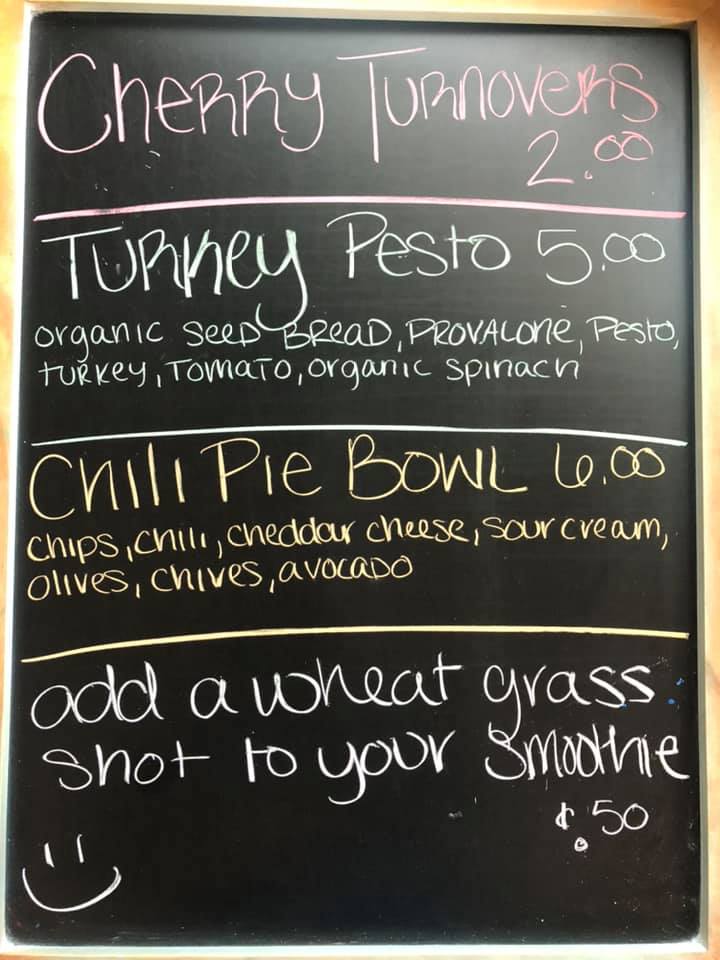 Cherry Turnovers
2.00
Turkey Pesto 5.00
organic seed bread, provalone, pesto,
turkey, tomato, organic spinach
Chili Pie Bowl 6.00
chips, chili, cheddar cheese, sour cream,
olives, chives, avocado
add a wheat grass
shot to your smoothie
¢.50